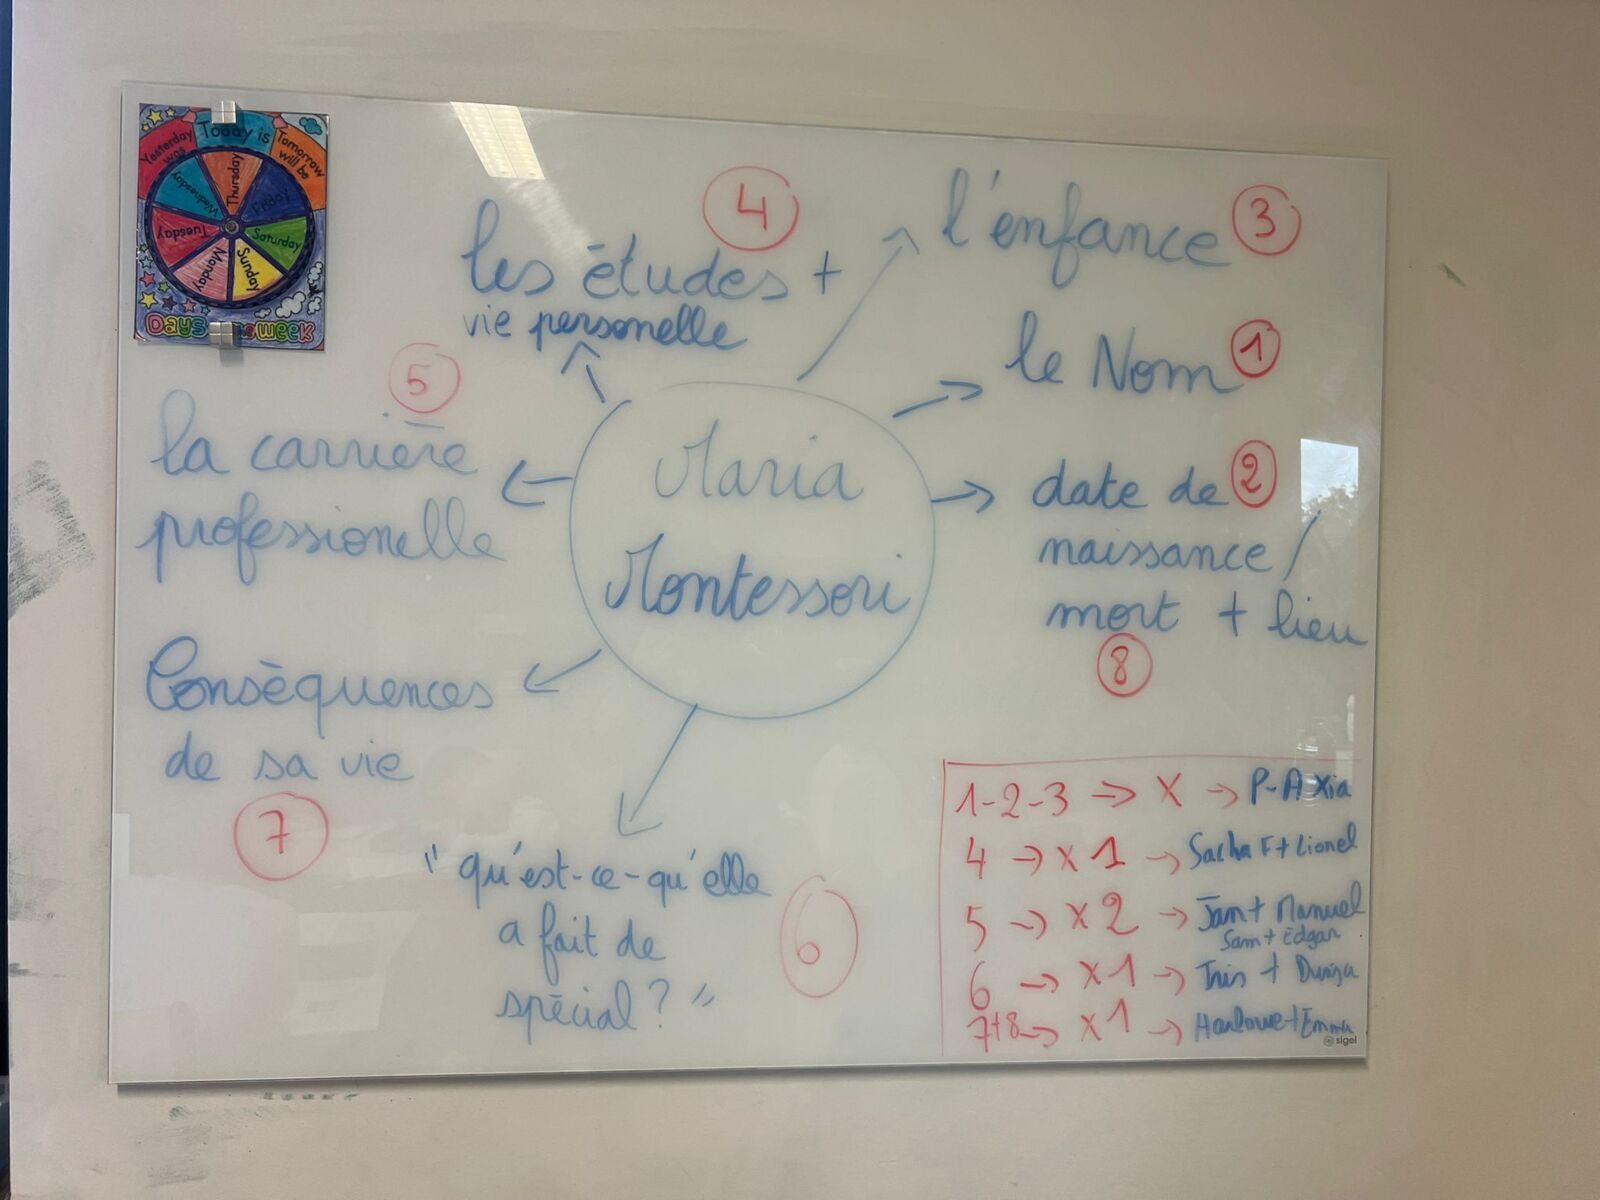 Yesterday was
Today is
Tomorrow will be
Wednesday
Thursday
Friday
Tuesday
Saturday
Monday
Sunday
Days
week
4
les études +
vie personelle
l'enfance 3
le Nom 1
5
la carrière
professionelle
Maria
Montessori
date de 2
naissance /
mort + lieu
8
Conséquences
de sa vie
7
"qu'est-ce-qu'elle
a fait de
spécial ?"
6
1-2-3 → X → P-A Xia
4 → X 1 → Sacha F + Lionel
5 → X 2 → Jan + Manuel
Sam + Edgar
6 → X 1 → +
7+8 → X 1 → + Emma
sigel